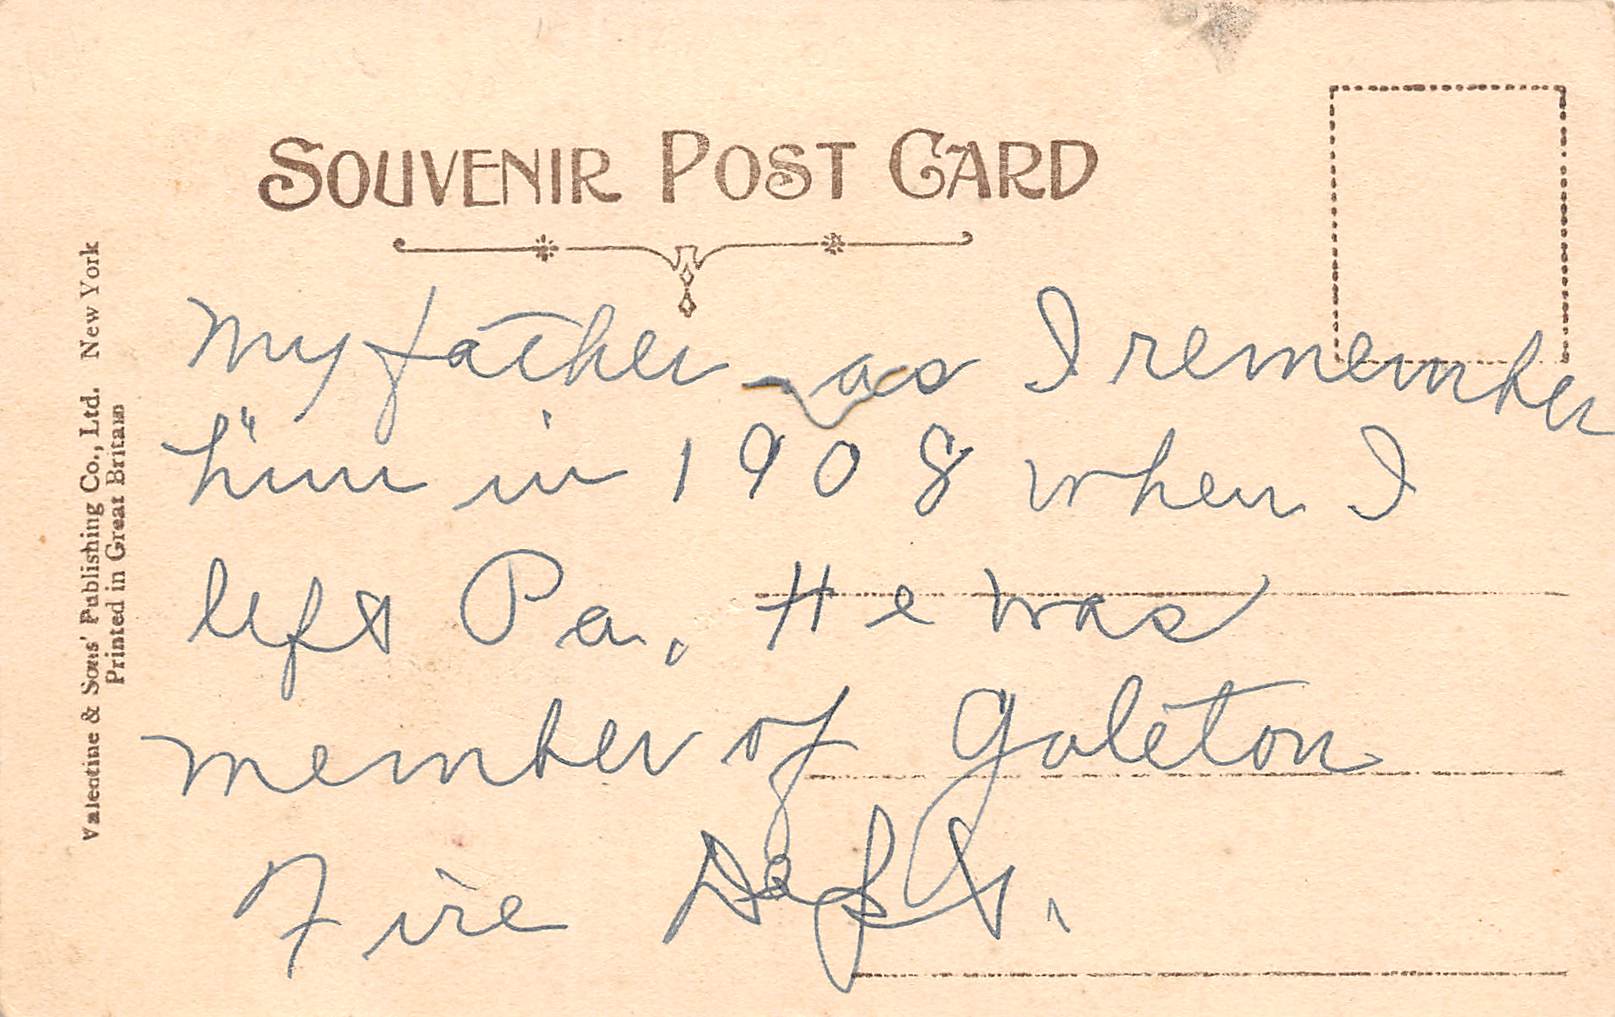 SOUVENIR POST CARD
My father - as I remember
him in 1908 when I
left Pa. He was
member of Galeton
Fire Dept.
Valentine & Sons' Publishing Co., Ltd. New York
Printed in Great Britain